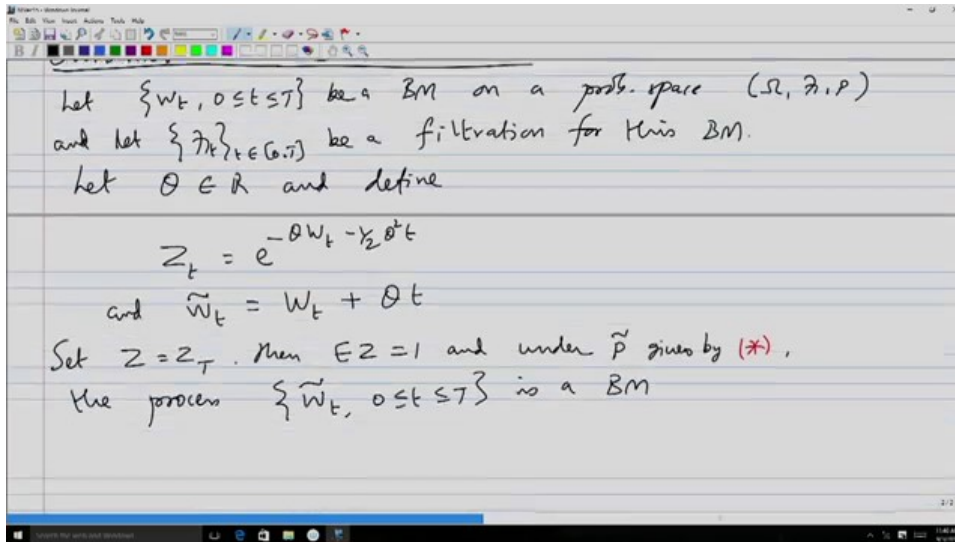 Let {W_t, 0 ≤ t ≤ T} be a BM on a prob. space (Ω, ℱ, P)
and let {ℱ_t}_{t ∈ [0,T]} be a filtration for this BM.
Let θ ∈ ℝ and define
Z_t = e^{-θW_t - 1/2 θ² t}
and W̃_t = W_t + θt
Set Z = Z_T. Then EZ = 1 and under P̃ given by (*),
the process {W̃_t, 0 ≤ t ≤ T} is a BM
2/2